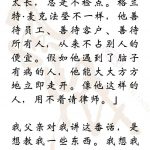 太长，总是不检点。格兰
特·麦克法登不一样，他善
待员工、善待客户、善待
所有人，从来不占别人的
便宜。假如他遇到了脑子
有病的人，他能大大方方
地立即走开。像他这样的
人，用不着请律师。」
我父亲对我讲这番话，是
想教我一些东西。我想我